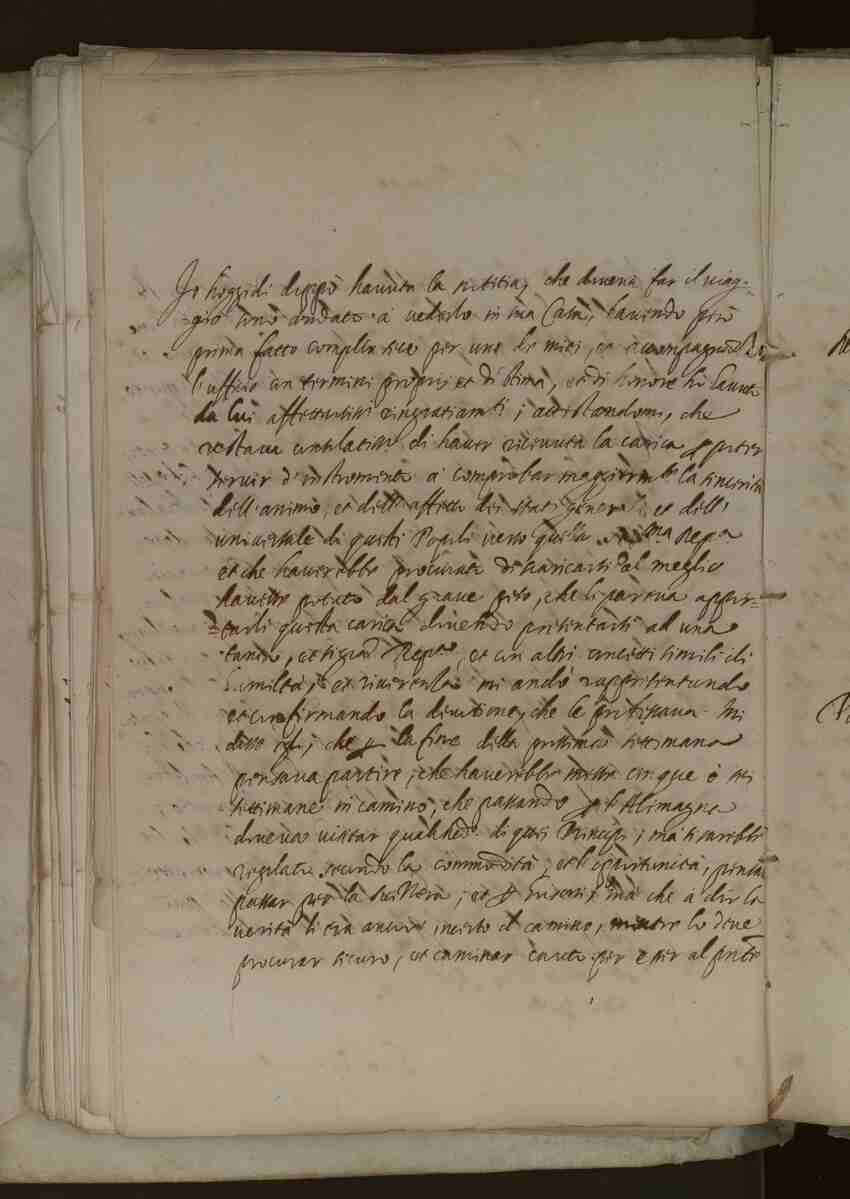 Io hoggidì doppò havuta la notitia, che doveva far il viag-
gio sono andato à vederlo in sua Casa, havendo però
prima fatto complir seco per uno de miei, et accompagnò
l'ufficio con termini proprij et di stima, et di honore hò havuto
da lui affettuosiss.i ringratiam.ti; attestandomi, che
restava consolatiss.o di haver ricevuta la carica p poter
servir d'instromento à comprobar maggiorm.te la sincerità
dell'animo, et dell'affetto dei stati generali, et dell'
universale di questi Popoli verso quella ser.ma Rep.ca
et che haverebbe procurato di scaricarsi al meglio
havesse potuto dal grave peso, che li pareva appor-
tarli questa carica dovendo presentarsi ad una
tanta, et si grād Rep.ca, et con altri concetti simili di
humiltà, et riverenza mi andò rappresentando
et confirmando la divotione, che le professava. Mi
disse che p la fine della prossima settimana
pensava partire, che haverebbe messo cinque ò sei
settimane in camino, che passando p l'Alemagna
doveva visitar qualched.o di quei Principi, ma si sarebbe
regolato secondo la commodità, et l'opportunità, pensa
passar per la ; et p ma che à dir la
verità li era ancora incerto il camino, mentre lo deve
procurar sicuro, et caminar cauto per esser al pnte